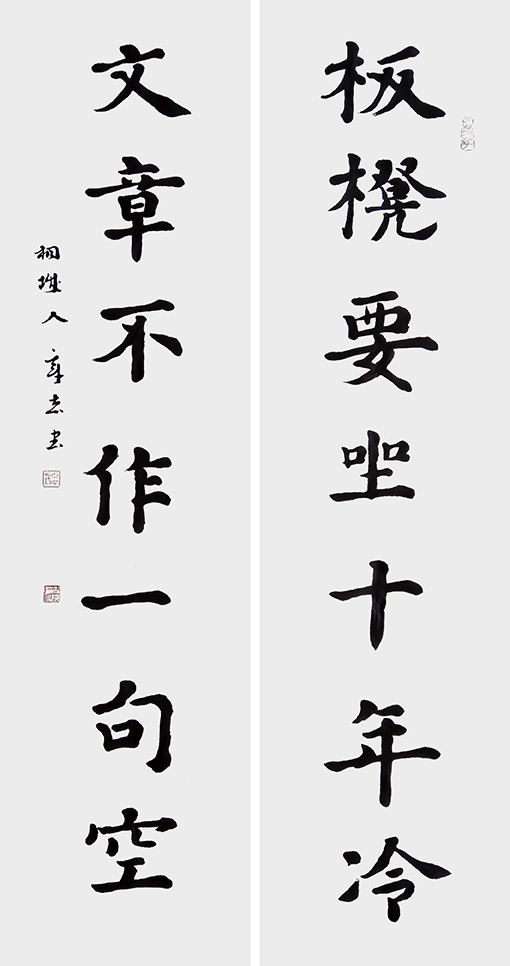 板櫈要坐十年冷
文章不作一句空
人章志书